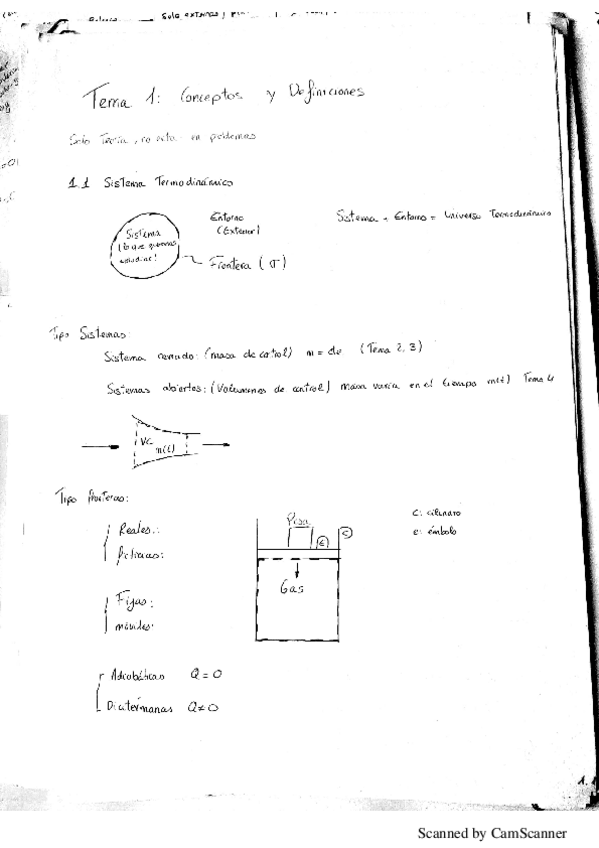 Sola externas
Tema 1: Conceptos y Definiciones
Solo Teoría, no entra en problemas
1.1 Sistema Termodinámico
Entorno
(Exterior)
Sistema + Entorno = Universo Termodinámico
Sistema
(lo que queremos
estudiar)
Frontera (σ)
Tipo Sistemas:
Sistema cerrado: (masa de control) m = cte (Tema 2, 3)
Sistemas abiertos: (Volumenes de control) masa varía en el tiempo m(t) Tema 4
VC
m(t)
Tipo fronteras:
Reales:
ficticias:
Fijas:
móviles:
Adiabáticas Q = 0
Diatérmanas Q ≠ 0
Pesa
e
c
Gas
c: cilindro
e: émbolo
1.1
Scanned by CamScanner